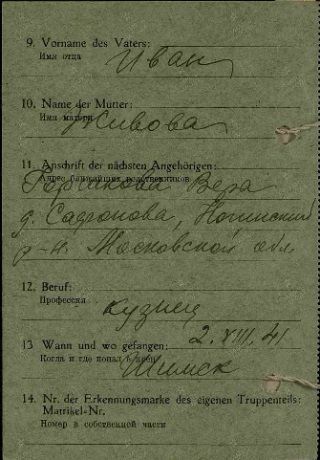 9. Vorname des Vaters:
Имя отца
Иван
10. Name der Mutter:
Имя матери
Живова
11. Anschrift der nächsten Angehörigen:
Адрес ближайших родственников
Горшкова Вера
д. Сафонова, Ногинский
р-н. Московской обл
12. Beruf:
Профессия
кузнец
13 Wann und wo gefangen: 2. VIII. 41
Когда и где попал в плен
Шимск
14. Nr. der Erkennungsmarke des eigenen Truppenteils:
Matrikel-Nr.
Номер в собственной части